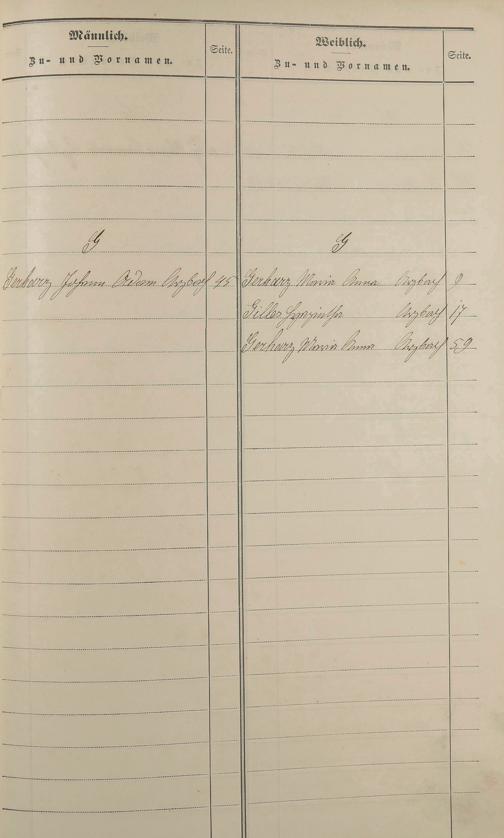 Männlich.
Zu- und Vornamen.
Seite.
G
Gerharz Johann Adam Arzbach 45
Weiblich.
Zu- und Vornamen.
Seite.
G
Gerharz Maria Anna Arzbach 9
Giller Hyazintha Arzbach 17
Gerharz Maria Anna Arzbach 59